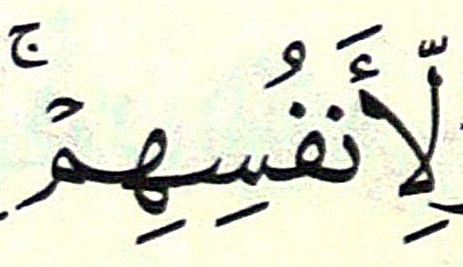 لِّأَنفُسِهِمْ ۚ